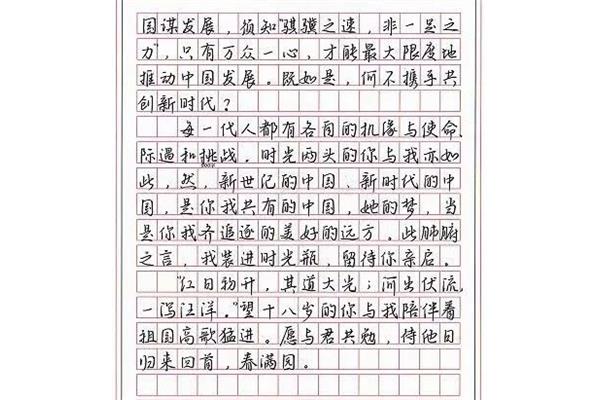 国谋发展，须知“骐骥之速，非一足之
力”，只有万众一心，才能最大限度地
推动中国发展。既如是，何不携手共
创新时代？
每一代人都有各自的机缘与使命、
际遇和挑战，时光两头的你与我亦如
此，然，新世纪的中国、新时代的中
国，是你我共有的中国，她的梦，当
是你我齐追逐的美好的远方。此肺腑
之言，我装进时光瓶，留待你亲启。
“红日初升，其道大光；河出伏流，
一泻汪洋。”望十八岁的你与我陪伴着
祖国高歌猛进。愿与君共勉，待他日
归来回首，春满园。